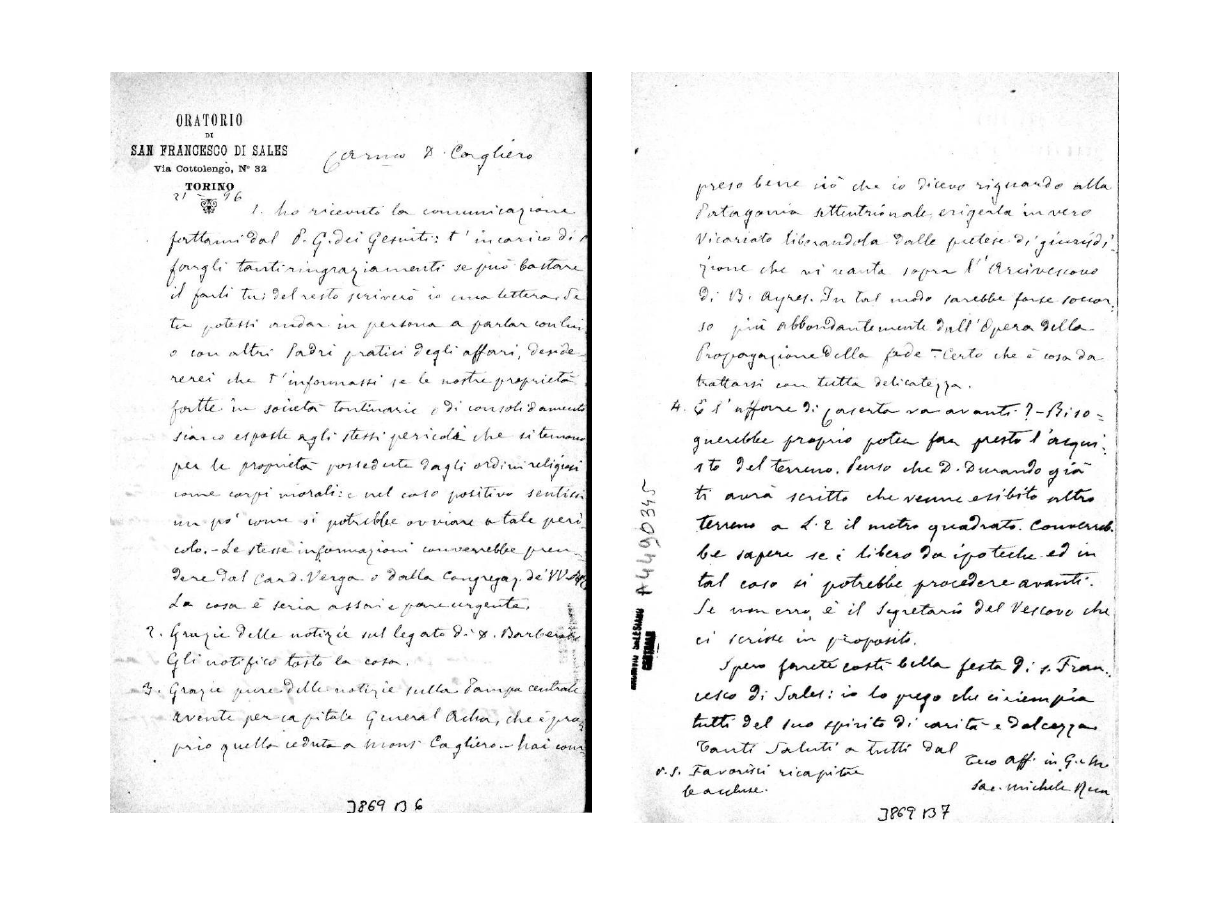 ORATORIO
DI
SAN FRANCESCO DI SALES
Via Cottolengo, Nº 32
TORINO
21 96
Carmo D. Cagliero
1. ho ricevuto la comunicazione
fattami dal P. G. dei Gesuiti: t'incarico di
fargli tanti ringraziamenti se può bastare
il farli tu: del resto scriverò io una lettera. Se
tu potessi andar in persona a parlar con lui
o con altri Padri pratici degli affari, deside-
rerei che t'informassi se le nostre proprietà
fatte in società tontinarie, di consolidamento
siano esposte agli stessi pericoli che si temono
per le proprietà possedute dagli ordini religiosi
come corpi morali: e nel caso positivo sentissi
un po' come si potrebbe ovviare a tale peri
colo. - Le stesse informazioni converrebbe pren-
dere dal Card. Verga o dalla Congregaz. de' VV
La cosa è seria assai e pare urgente.
2. Grazie delle notizie sul legato di D.
Gli notifico tosto la cosa.
3. Grazie pure delle notizie sulla Pampa centrale
avente per capitale General Acha, che è pro
prio quella ceduta a Mons Cagliero. - hai com
J869 B 6
preso bene ciò che io dicevo riguardo alla
Patagonia settentrionale, erigerla in vero
Vicariato liberandola dalle pretese di giurisdi-
zione che vi vanta sopra l'Arcivescovo
di B. Ayres. In tal modo sarebbe forse soccor-
so più abbondantemente dall'Opera della
Propagazione della fede - Certo che è cosa da
trattarsi con tutta delicatezza.
4. E l'affare di Caserta va avanti? - Biso=
gnerebbe proprio poter far presto l'acqui-
sto del terreno. Penso che D. Durando già
ti avrà scritto che venne esibito altro
terreno a L. 2 il metro quadrato. Converreb-
be sapere se è libero da ipoteche ed in
tal caso si potrebbe procedere avanti.
Se non erro, è il Segretario del Vescovo che
ci scrisse in proposito.
Spero farete costì bella festa di s. Fran-
cesco di Sales: io lo prego che ci riempia
tutti del suo spirito di carità e dolcezza
Tanti Saluti a tutti dal
Tuo aff. in G. e M.
Sac. Michele Rua
P.S. Favorisci ricapitare
le accluse.
A4490345
J869 B7